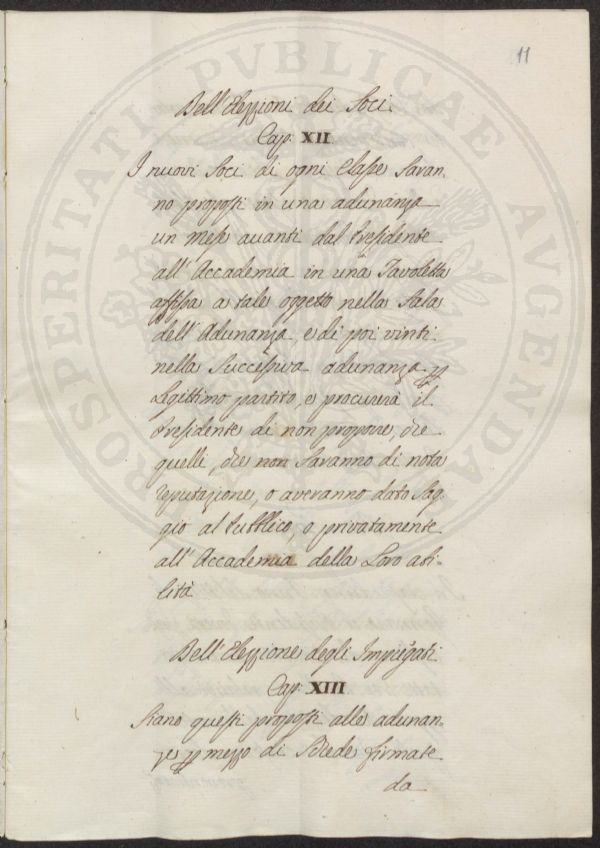 11
Dell'Elezzioni dei Soci.
Cap: XII.
I nuovi Soci di ogni Classe saran-
no proposti in una adunanza
un mese avanti dal Presidente
all'Accademia in una Tavoletta
affissa a tale oggetto nella Sala
dell'Adunanza, e di poi vinti
nella successiva adunanza p
Legittimo partito, e procurerà il
Presidente di non proporre, che
quelli, che non saranno di nota
reputazione, o averanno dato Sag-
gio al Pubblico, o privatamente
all'Accademia della Loro abi-
lità
Dell'Elezzione degli Impiegati
Cap: XIII.
Siano questi proposti alle adunan-
ze p mezzo di Schede firmate
da
PROSPERITATI PVBLICAE AVGENDAE